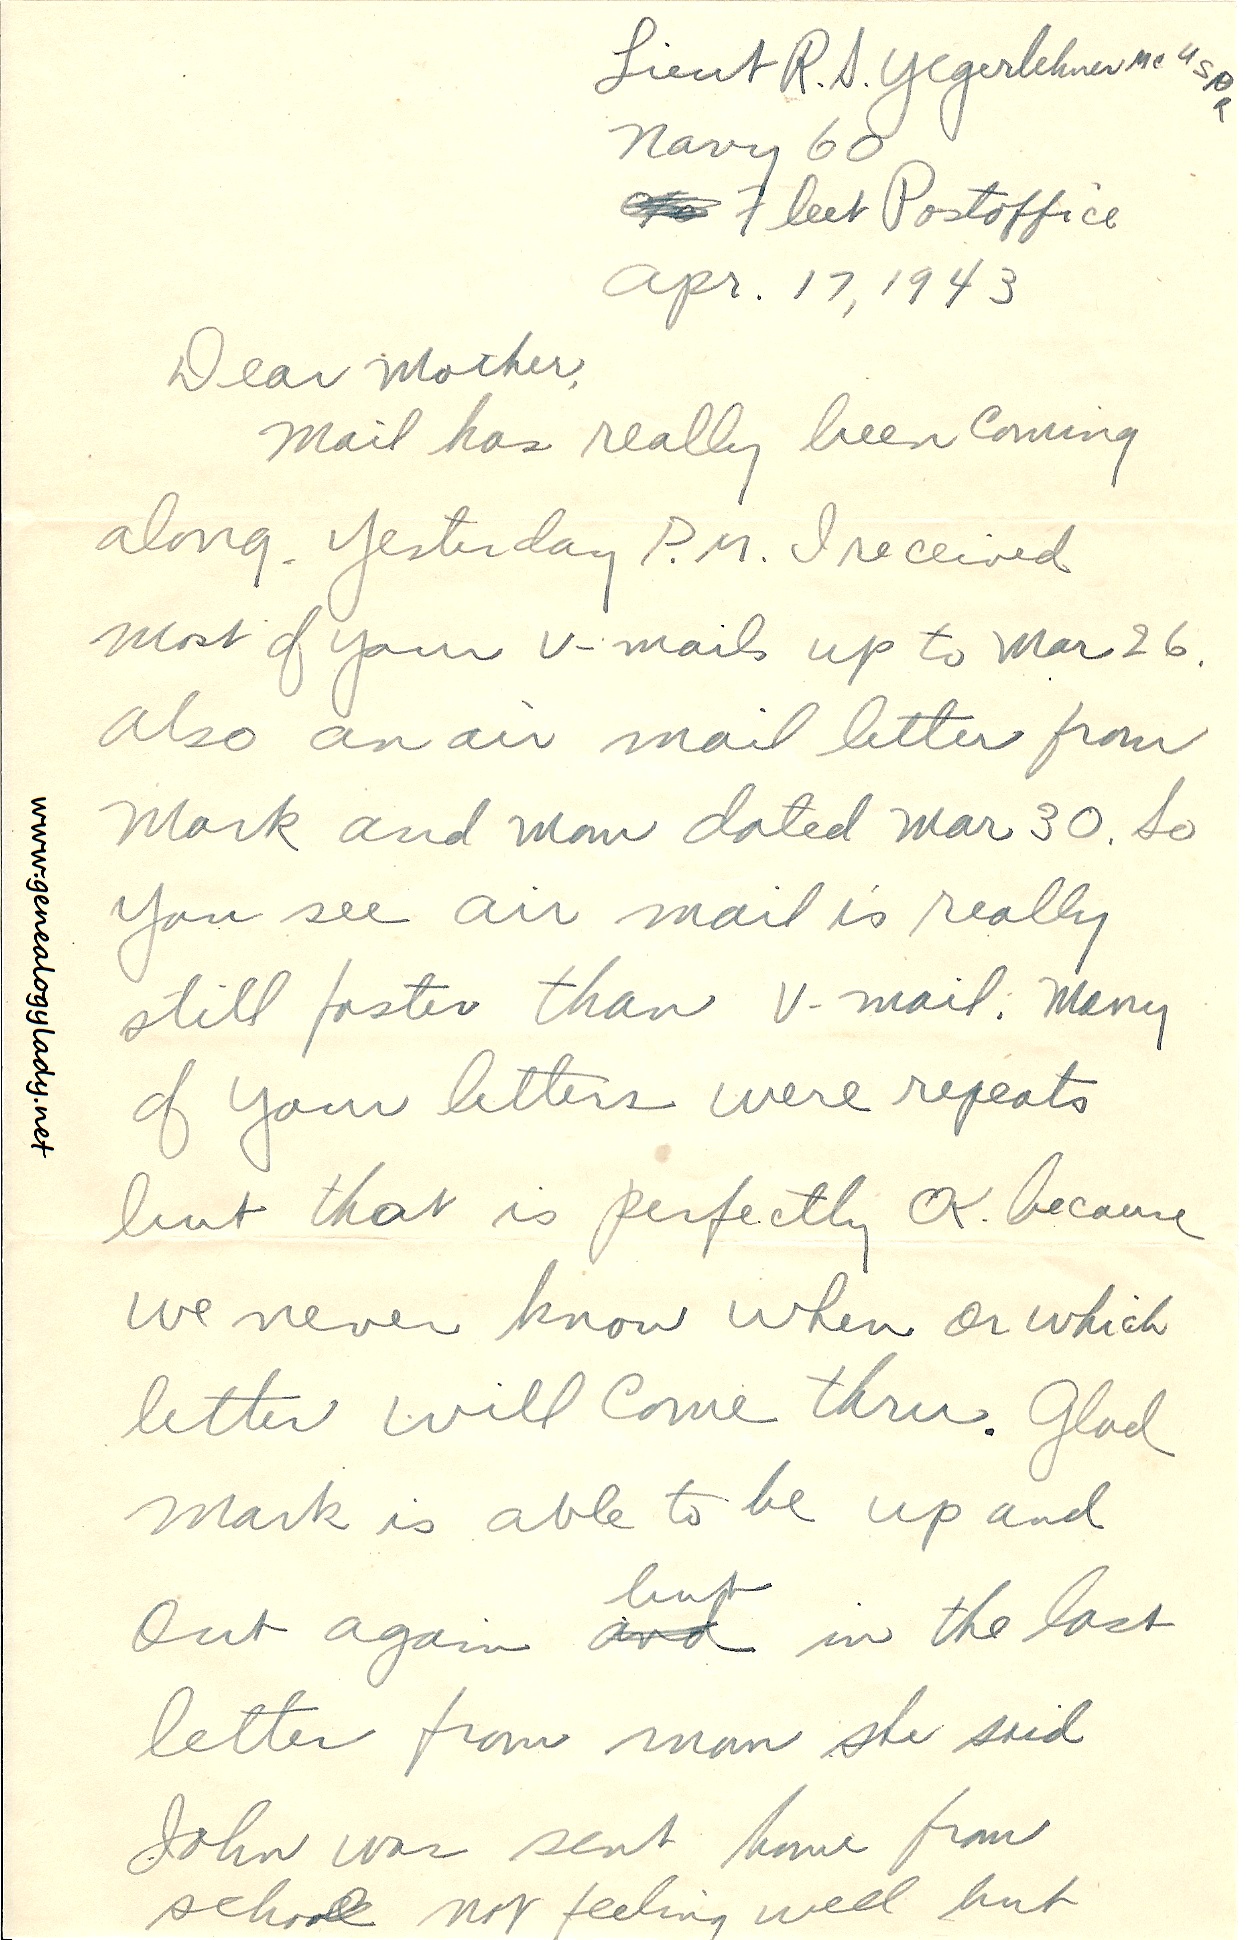 Lieut R.S. Yegerlehner MC USNR
Navy 60
Fleet Postoffice
Apr. 17, 1943
Dear Mother,
Mail has really been coming
along. Yesterday P.M. I received
most of your V-mails up to Mar 26.
also an air mail letter from
Mark and Mom dated Mar 30. So
you see air mail is really
still faster than V-mail. Many
of your letters were repeats
but that is perfectly OK. because
we never know when or which
letter will come thru. Glad
Mark is able to be up and
but
out again and in the last
letter from mom she said
John was sent home from
school not feeling well but
www.genealogylady.net